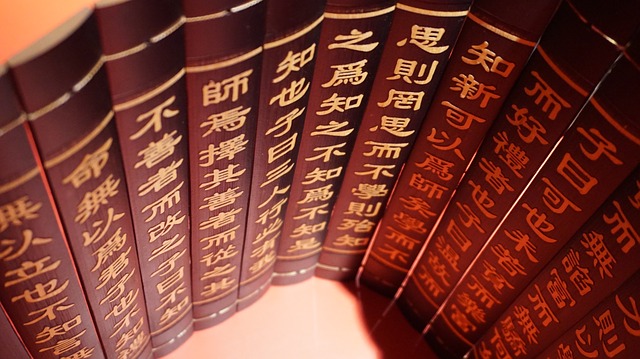 而無諂富而無
子曰可也未若貧而樂富
而好禮者也子曰溫故而
知新可以爲師矣學而不
思則罔思而不學則殆知
之爲知之不知爲不知是
知也子曰三人行必有我
師焉擇其善者而從之其
不善者而改之子曰不知
命無以爲君子也不知禮
無以立也不知言